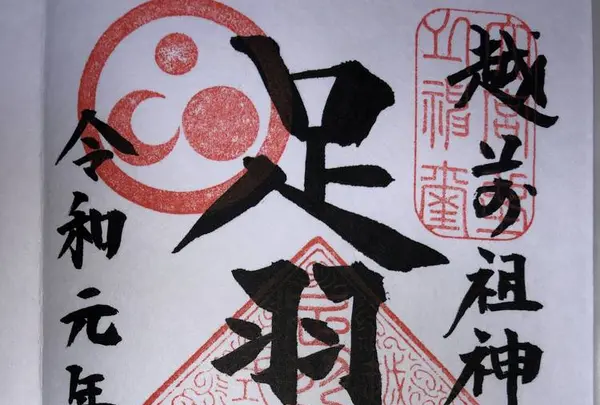 越前祖神
足羽
令和元年